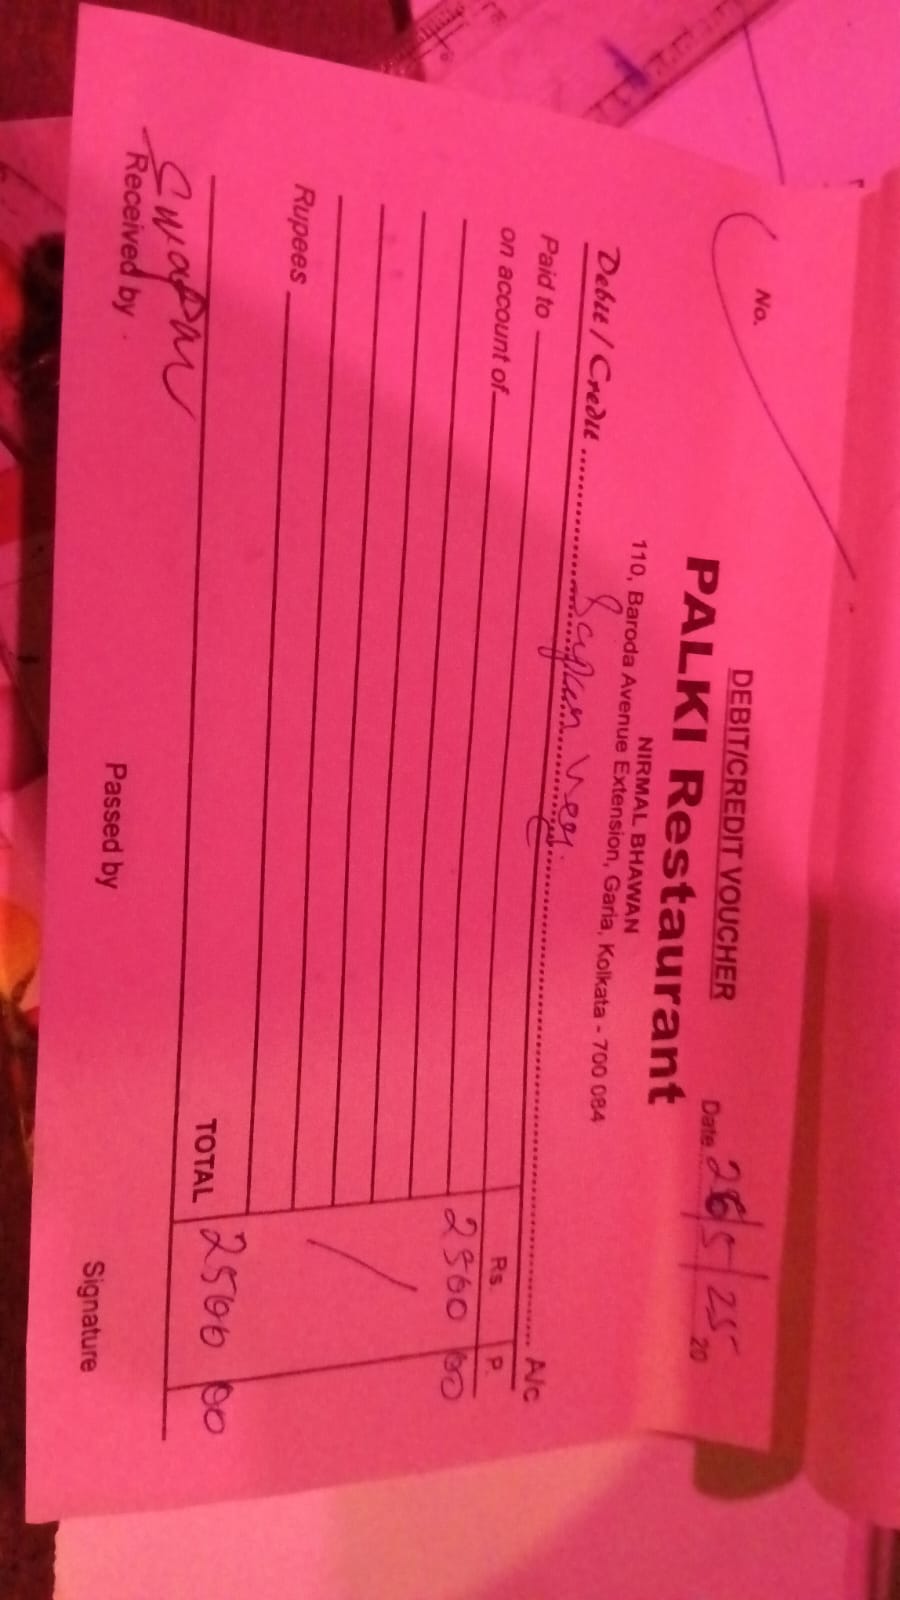 No.
DEBIT/CREDIT VOUCHER
Date 26/5/25 20
PALKI Restaurant
NIRMAL BHAWAN
110, Baroda Avenue Extension, Garia, Kolkata - 700 084
Debit / Credit ........................ A/c
Paid to
on account of
Rs. P.
2500 00
Rupees
TOTAL 2500 00
Swapan
Received by
Passed by
Signature